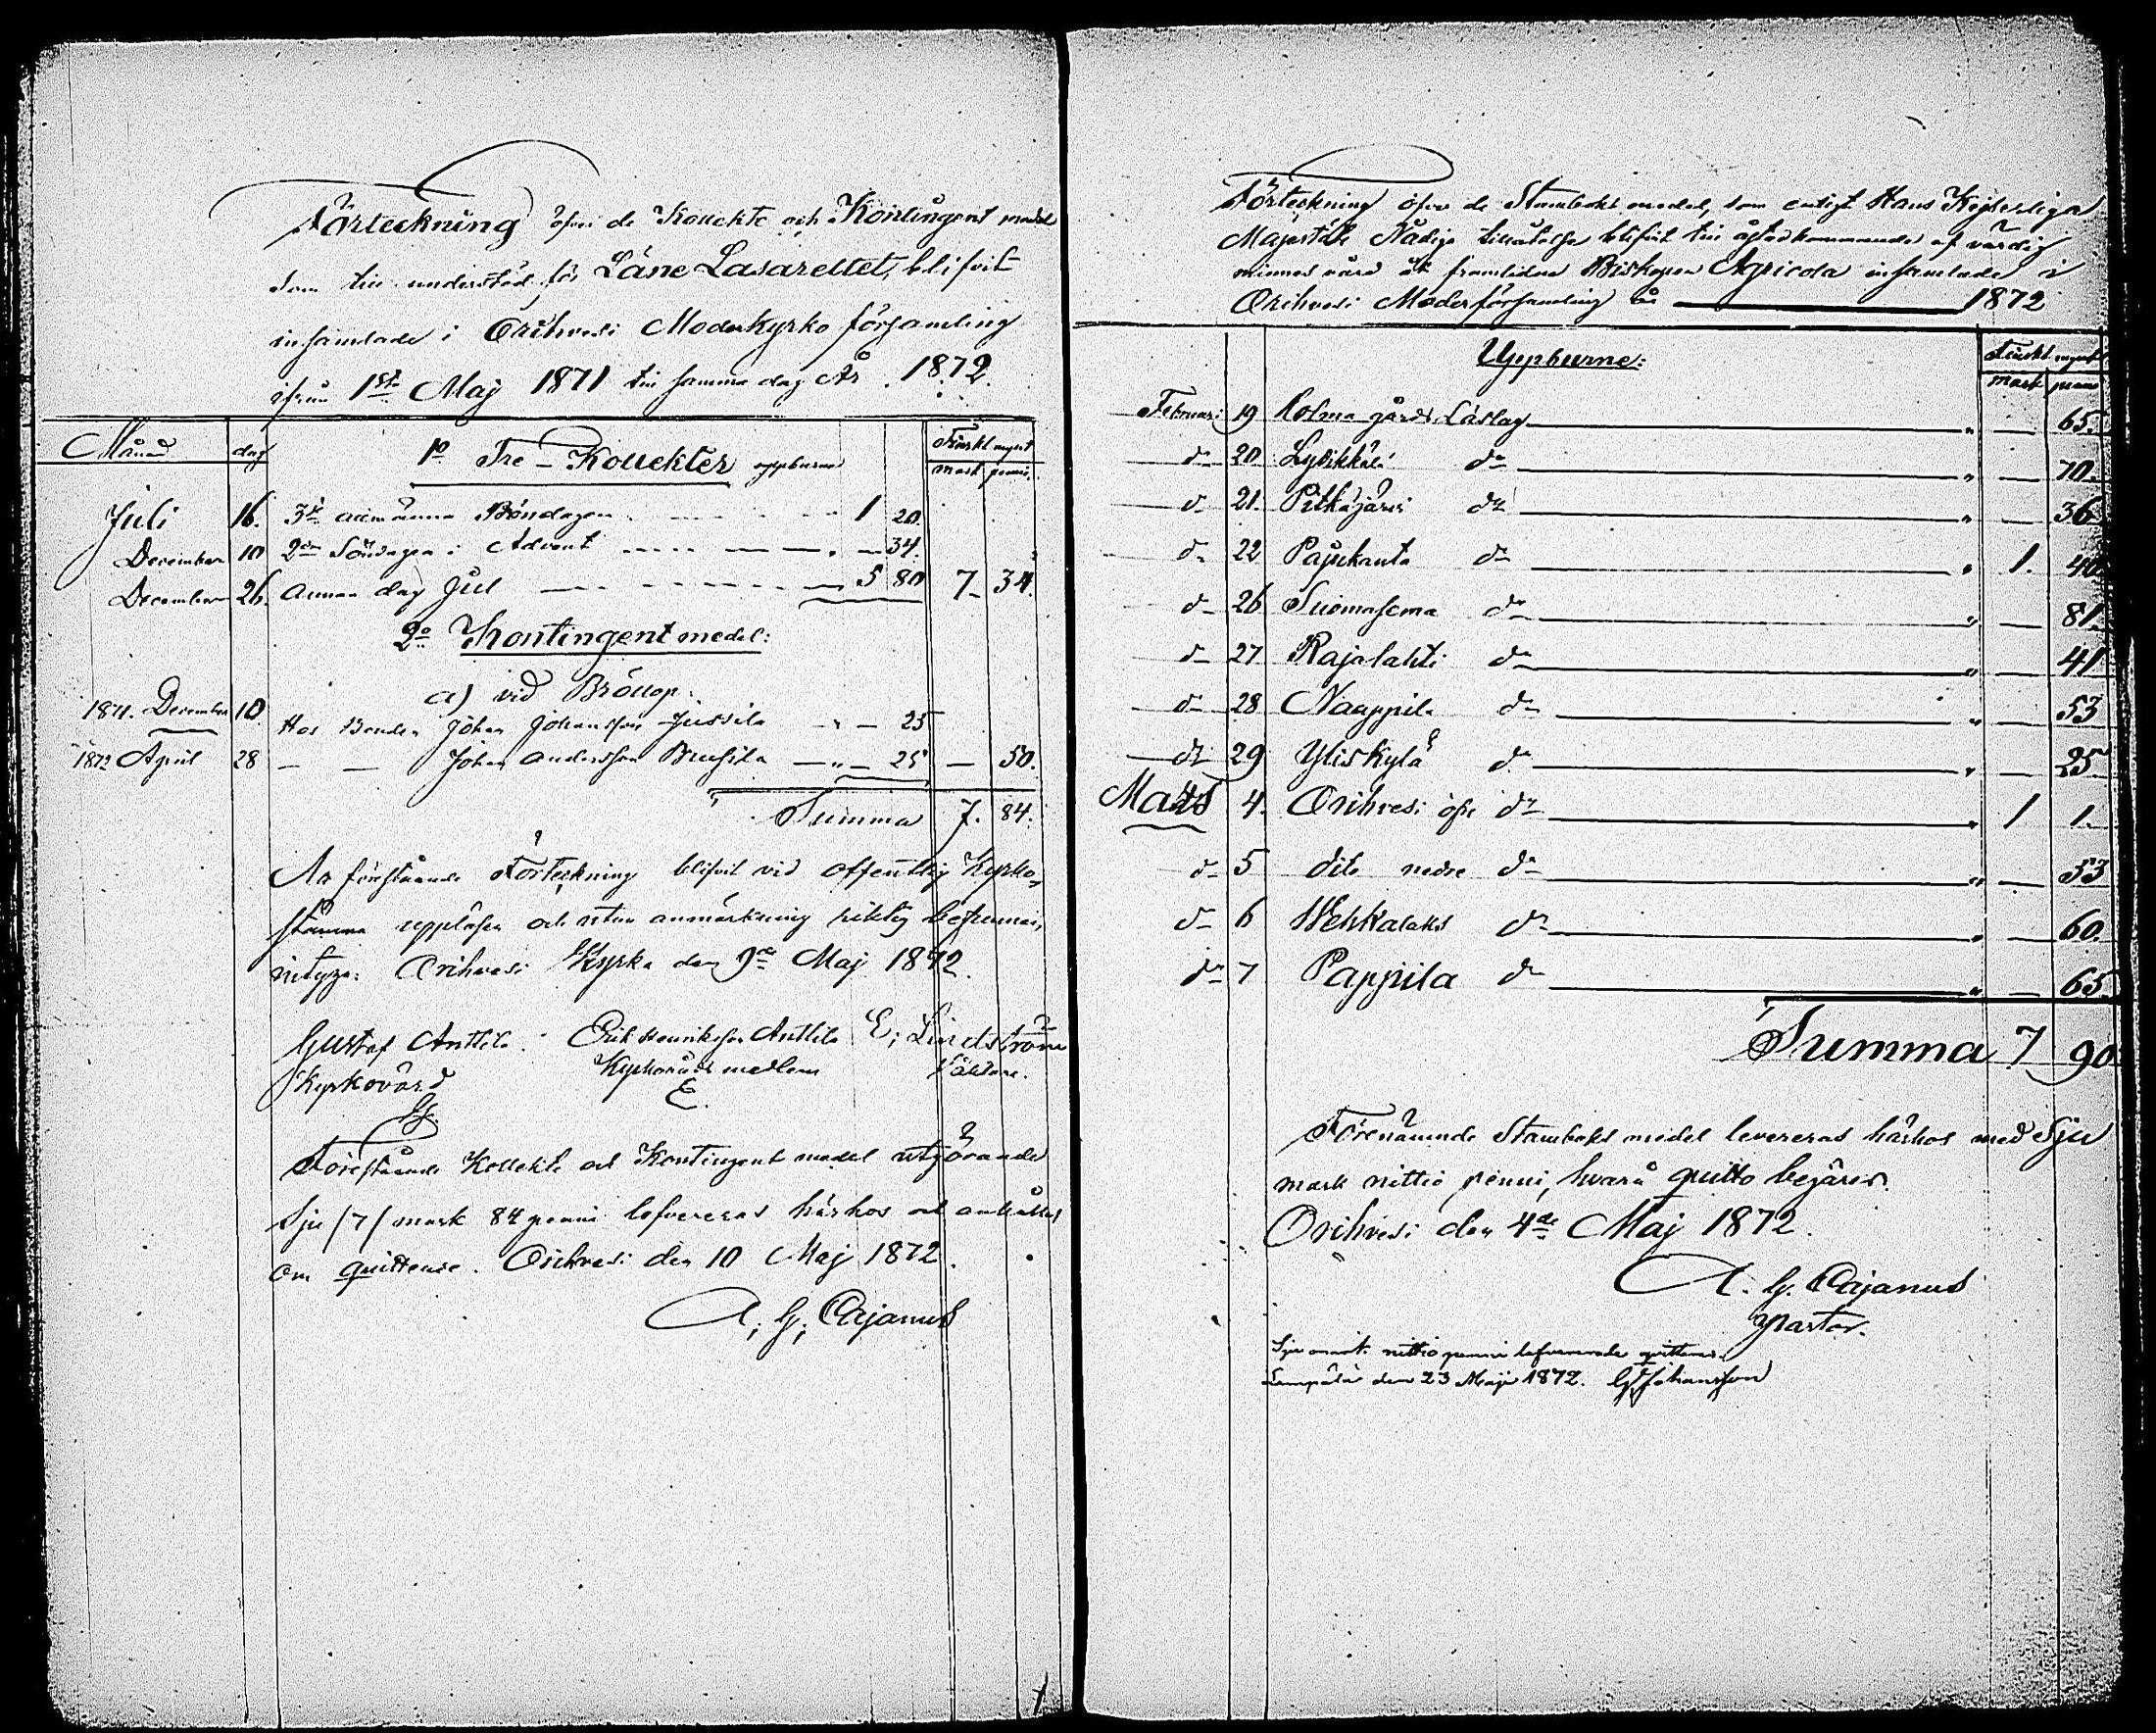 Förteckning öfver de Kollekte och Kontingent medel
Som till understöd för Läne Lasarettet, blifvit
insamlade i Orihvesi Moderkyrko församling
ifrån 1sta Maj 1871 till samma dag År 1872.
Månad dag 1o Tre-Kollekter uppburne Finskt mynt
mark penni.
Juli 16. 3de allmänna Böndagen 1 20.
December 10 2dra Söndagen i Advent " — 34.
December 26. Annan dag Jul 5 80 7 — 34.
2o Kontingent medel:
a) vid Bröllop:
1871. December 10 Hos Bonden Johan Johansson Jussila " — 25
1872 April 28 — — Johan Andersson — " — 25 — 50.
Summa 7. 84.
At förestående Förteckning blifvit vid offentlig Kyrko-
stämma uppläsen och utan anmärkning riktig befunnen,
intyga: Orihvesi Kyrka den 9de Maj 1872.
Gustaf Anttila. Erik Henriksson Anttila E; Lindström
Kyrkovärd Kyrkoråds medlem Väktare.
E.
Förestående Kollekte och Kontingent medel utgörande
Sju /7/ mark 84 penni lefvereras härhos och anhålles
om quittence. Orihvesi den 10 Maj 1872.
A; G; Cajanus
Förteckning öfver de Stamboks medel, som enligt Hans Kejserliga
Majestäts Nådiga tillåtelse blifvit till åstadkommande af värdig
minnes vård åt framlidne Biskopen Agricola insamlade i
Orihvesi Moderförsamling år 1872
Uppburne: Finskt mynt
mark penni
Februari 19 Holma gårds Läslag " — 65.
do 20 Lyöikkälä do " — 70.
do 21. Pitkäjärvi do " — 36
do 22 Pajukanta do " 1. 40.
do 26 Suomasema do " — 81.
do 27 Rajalahti do " — 41
do 28 Naappila do " — 53
do 29 Yliskylä do " — 25
Mars 4. Orihvesi öfre do " 1 1.
do 5 dito nedre do " — 53
do 6 Wehkalaks do " — 60.
do 7 Pappila do " — 65.
Summa 7 90
Förenämnde Stamboks medel levereras härhos med Sju
mark nittio penni, hvarå quitto begäres.
Orihvesi den 4de Maj 1872.
A. G. Cajanus
pastor.
Sju mark nittio penni lefvererade quitteras.
Lempälä den 23 Maji 1872. G Johansson